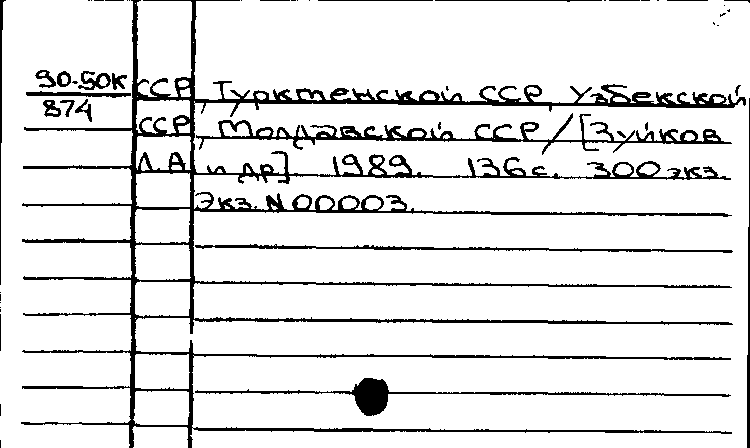 90-50к ССР, Турктенской ССР, Узбекской
874 ССР, Молдавской ССР / [Зуйков
Л.А. и др]. 1989. 136с. 300 экз.
Экз. N 00003.